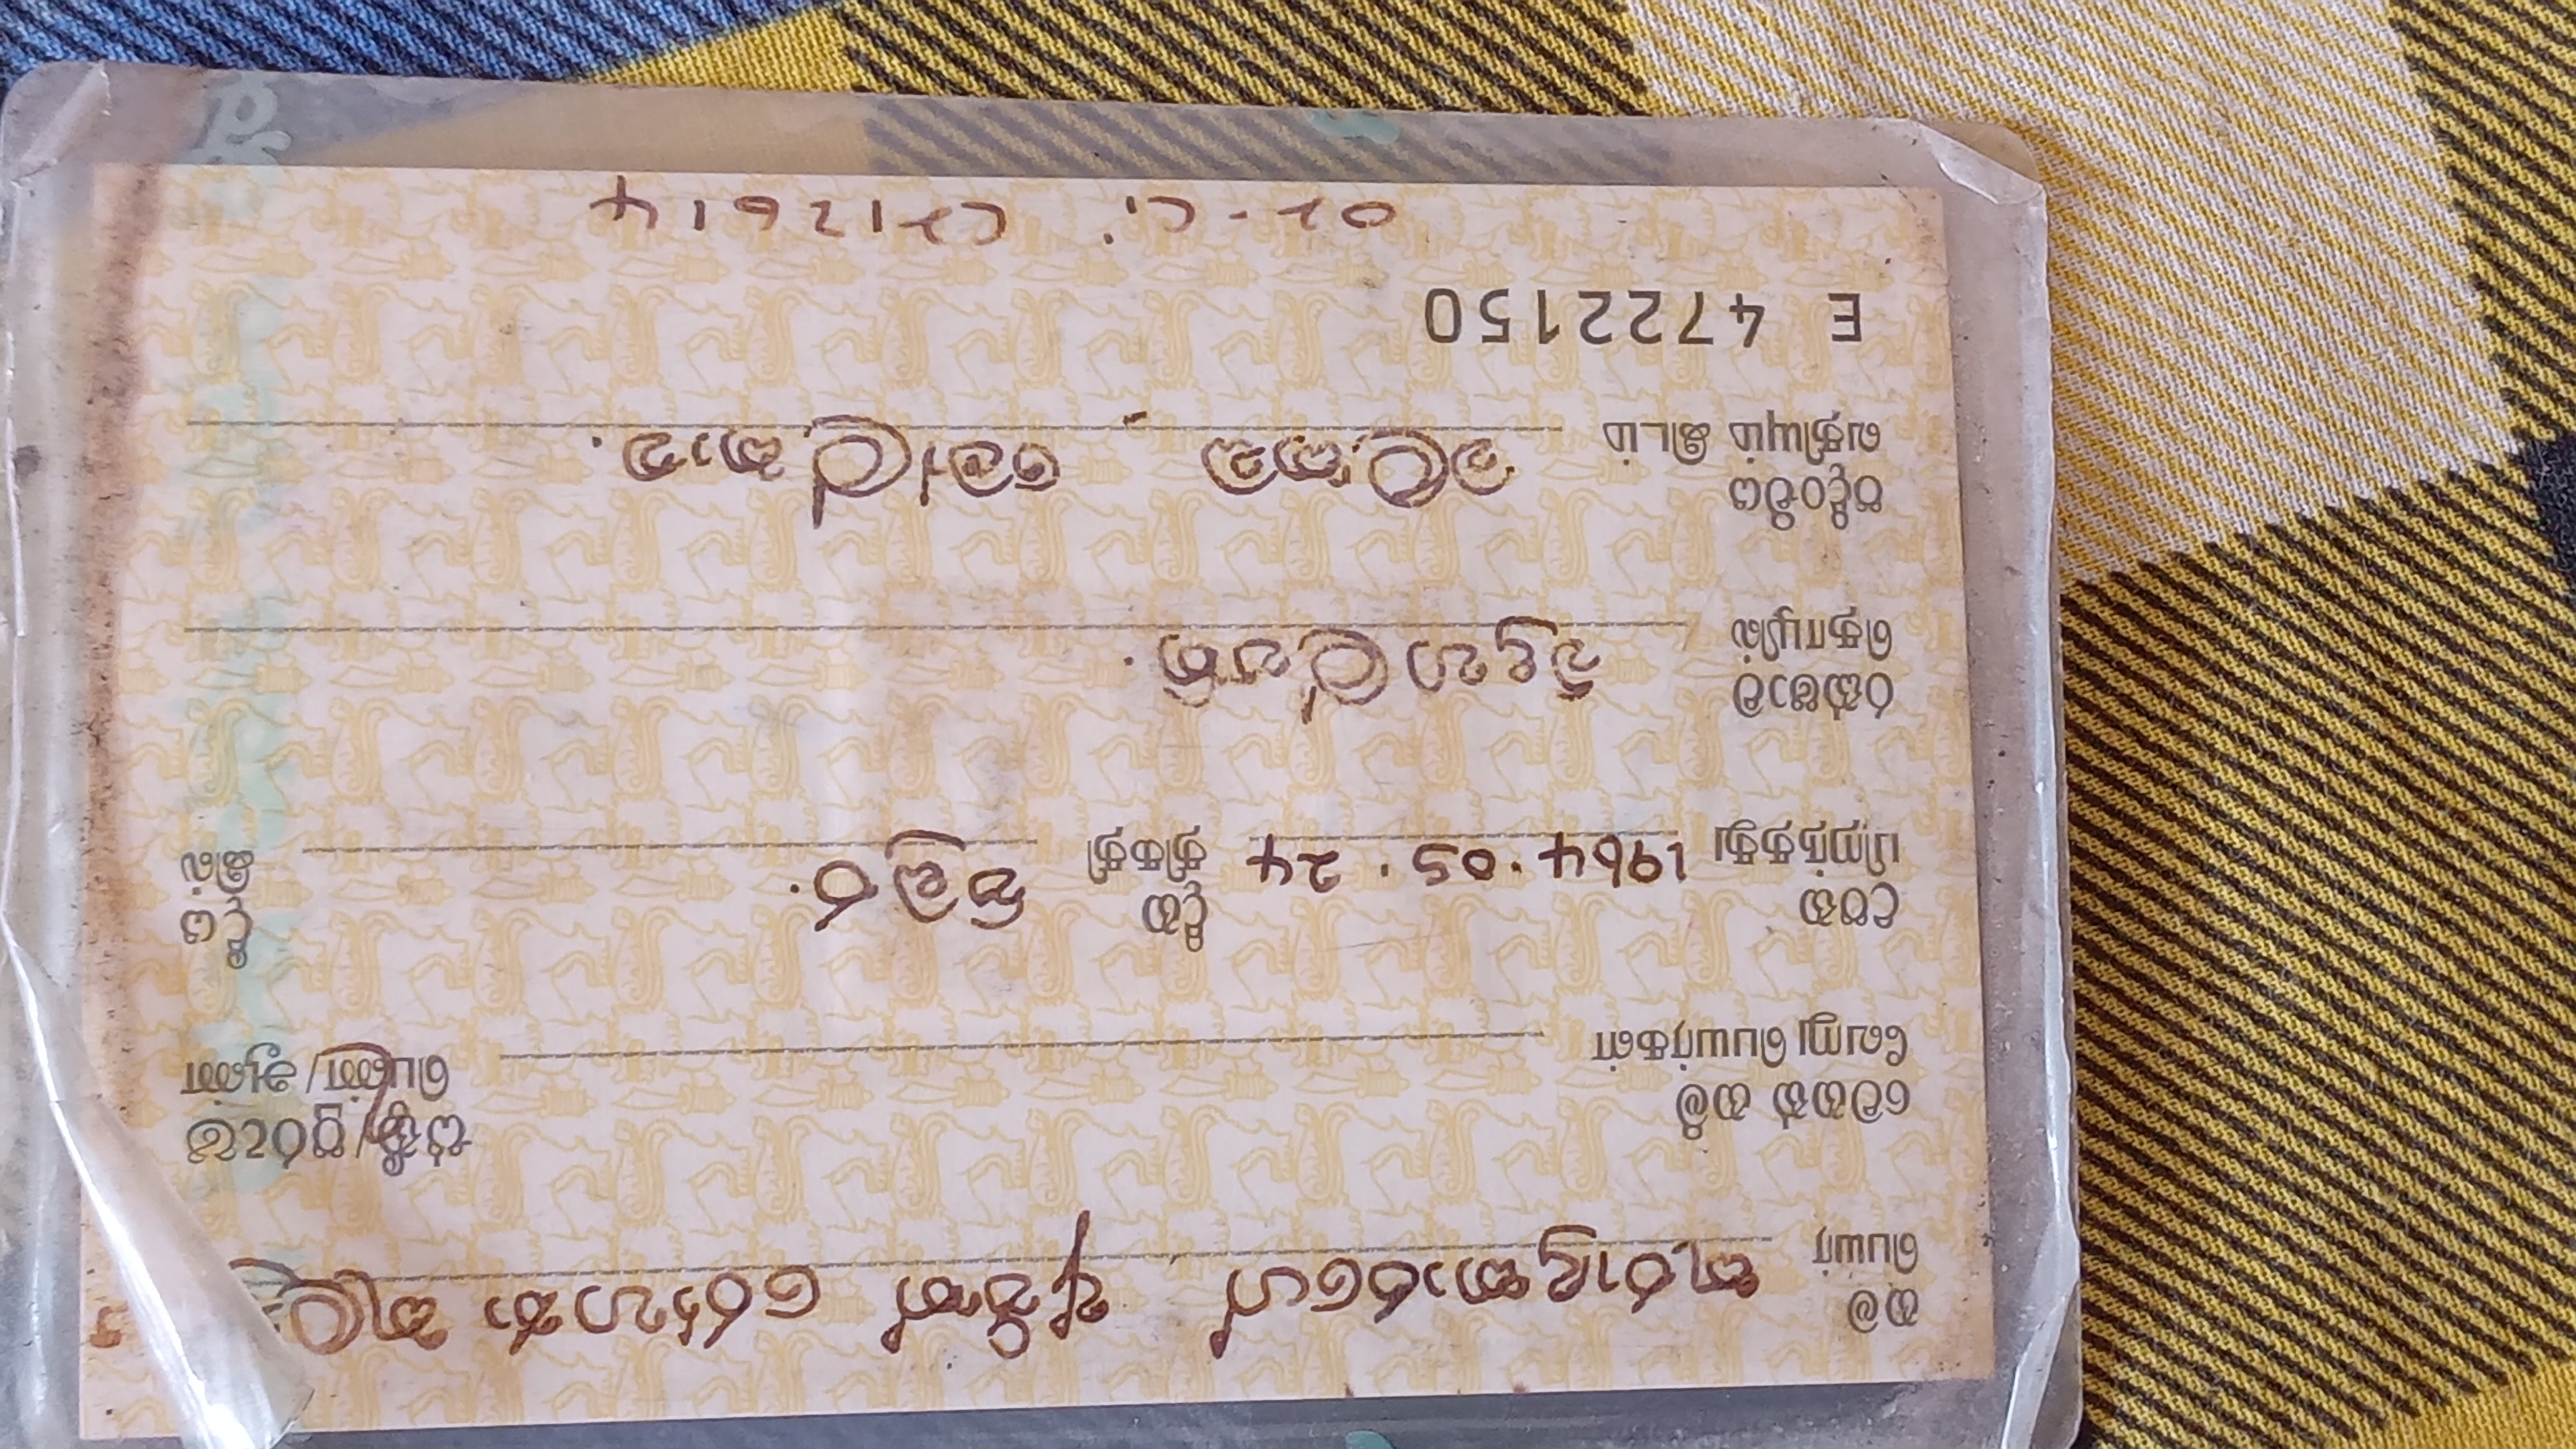 නම
பெயர் කුරාඳුකාරගේ අජිත් රෝහණ
වෙනත් නම්
வேறு பெயர்கள்
ස්ත්‍රී/පුරුෂ
பெண்/ஆண்
උපත දින දීය
பிறந்தது 1964.05.24 திகதி පිඹුර. இல்
රක්ෂාව
தொழில் විදුහල්පති.
පදිංචිය
வதியும் இடம் වලකඩ, මෝල්කාව.
E 4722150
02-Ci 212614